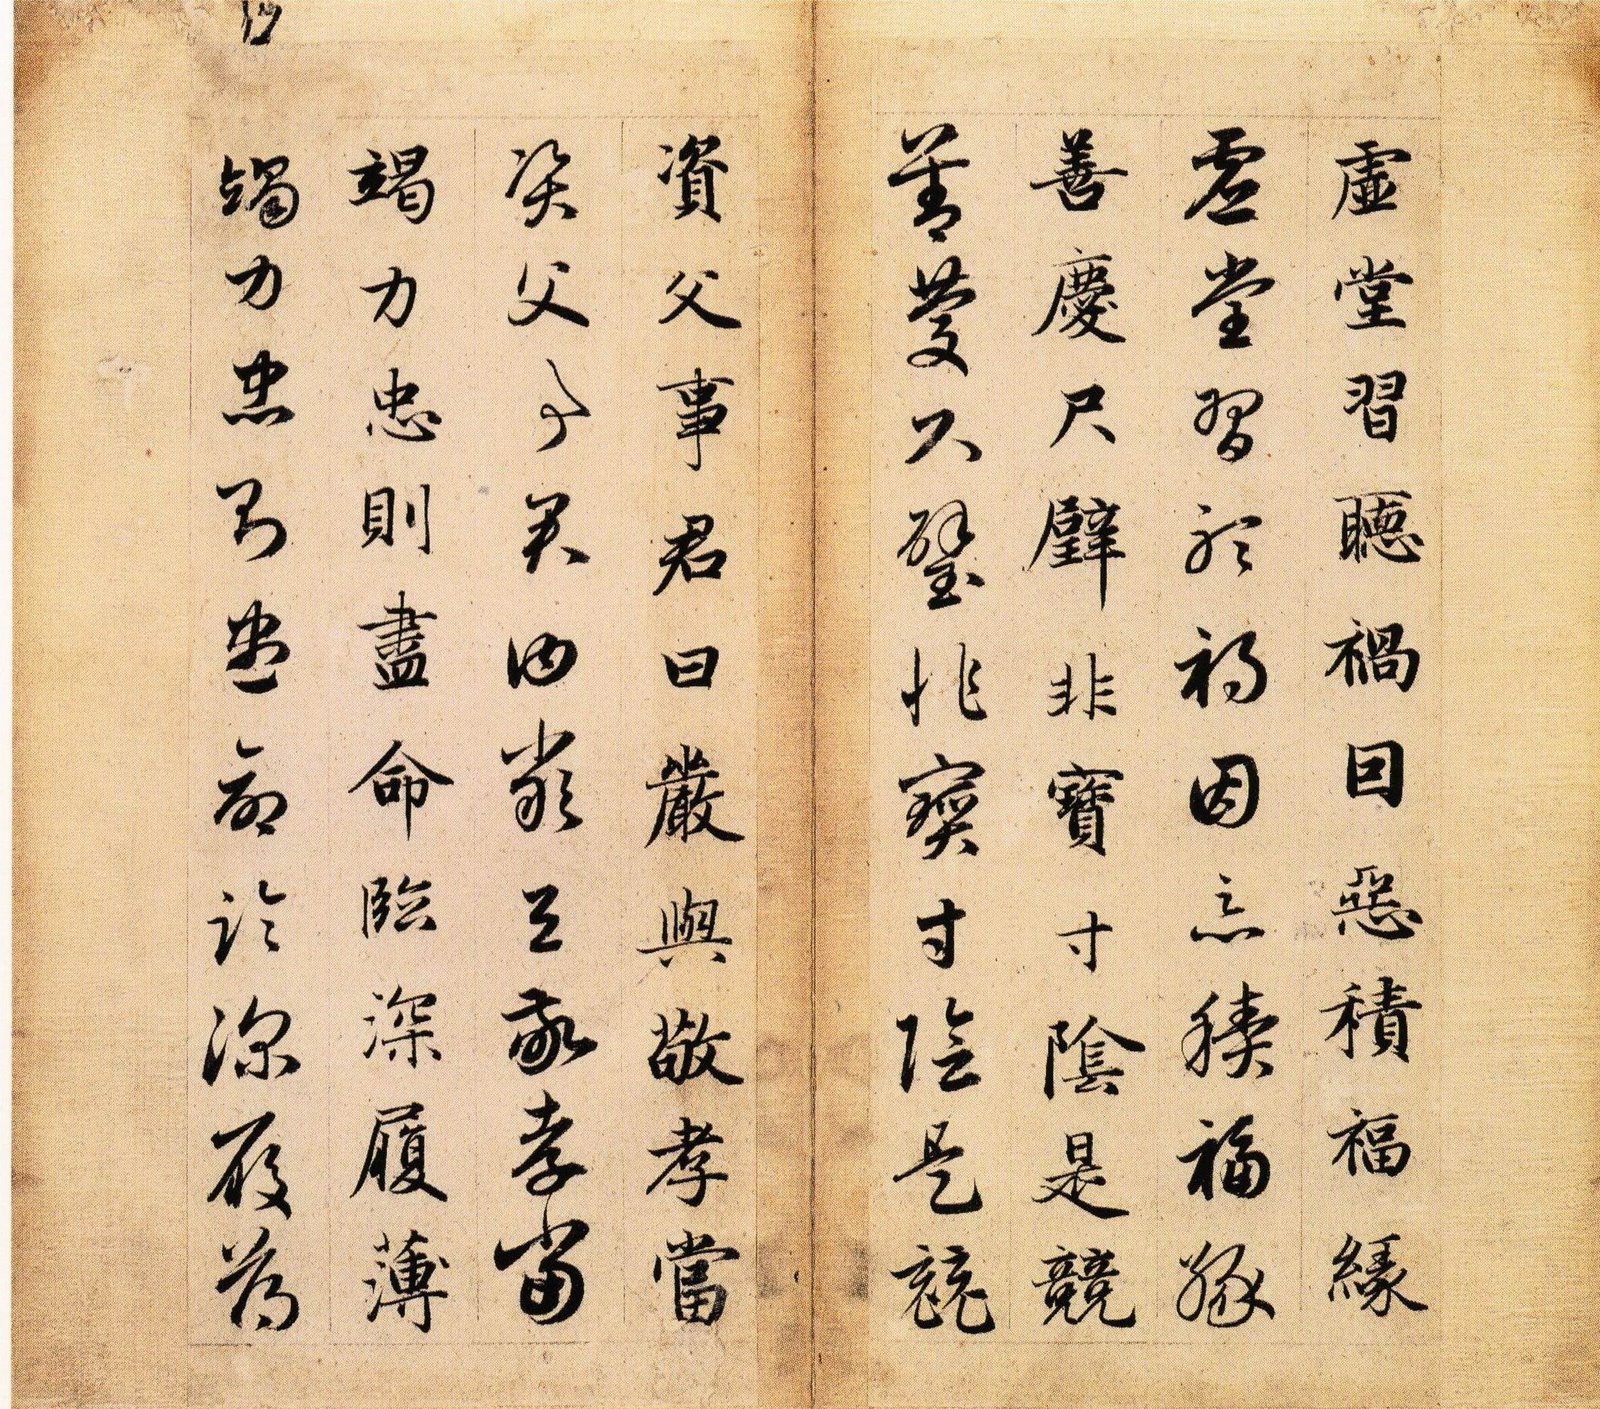 虛堂習聽禍因惡積福緣
虛堂習聽禍因惡積福緣
善慶尺璧非寶寸陰是競
善慶尺璧非寶寸陰是競
資父事君曰嚴與敬孝當
資父事君曰嚴與敬孝當
竭力忠則盡命臨深履薄
竭力忠則盡命臨深履薄